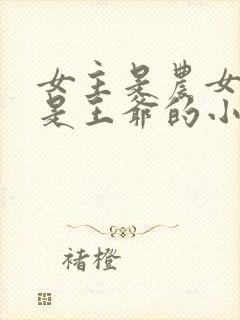 女主是農女
是王爺的小
褚橙